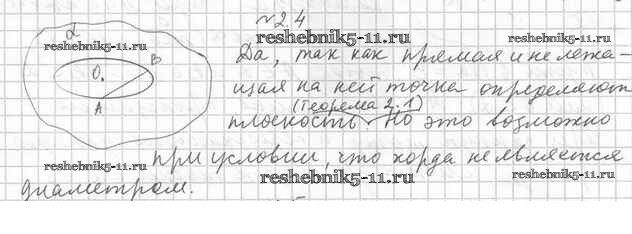 №2.4
α
reshebnik5-11.ru reshebnik5-11.ru reshebnik5-11.ru
O. B
A
Да, так как прямая и не лежа-
щая на ней точка определяют
(теорема 2.1)
плоскость. Но это возможно
при условии, что хорда не является
reshebnik5-11.ru reshebnik5-11.ru reshebnik5-11.ru
диаметром.